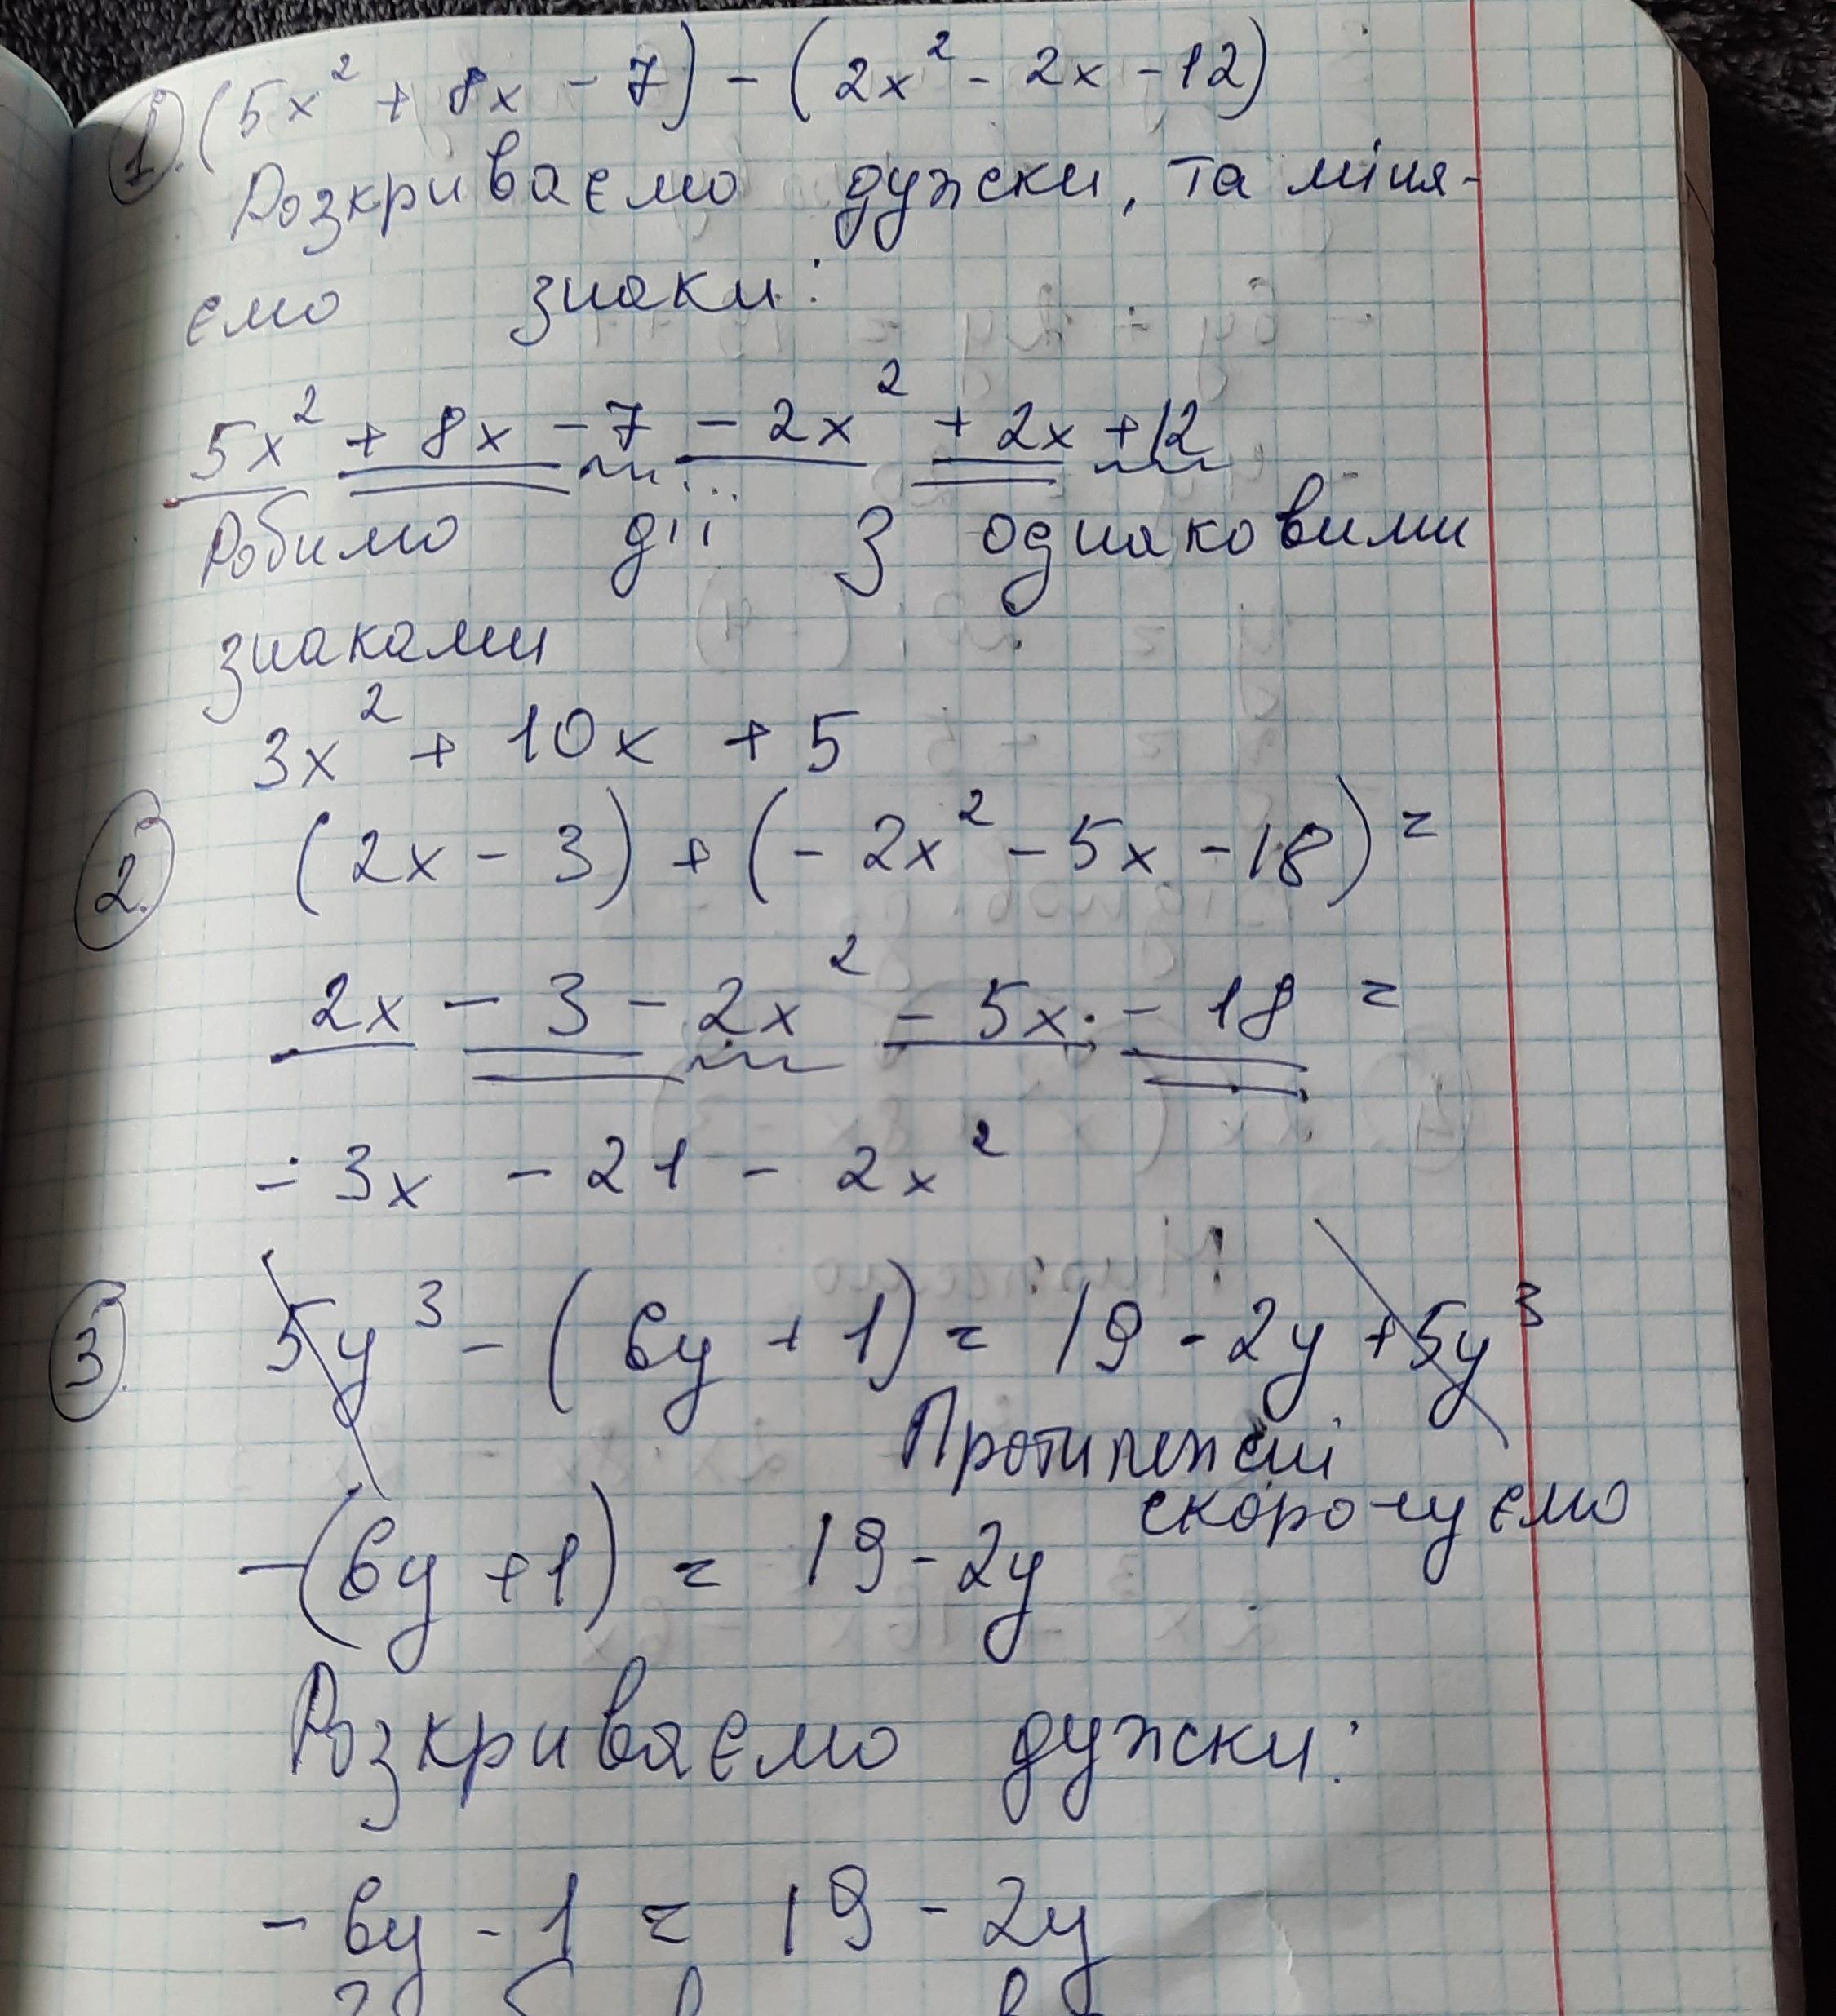 1. (5x² + 8x - 7) - (2x² - 2x - 12)
Розкриваємо дужки, та міня-
ємо знаки:
5x² + 8x - 7 - 2x² + 2x + 12
Робимо дії з однаковими
знаками
3x² + 10x + 5
2. (2x - 3) + (- 2x² - 5x - 18) =
2x - 3 - 2x² - 5x - 18 =
- 3x - 21 - 2x²
3. 5y³ - (6y + 1) = 19 - 2y + 5y³
Протилежні
скорочуємо
-(6y + 1) = 19 - 2y
Розкриваємо дужки:
- 6y - 1 = 19 - 2y